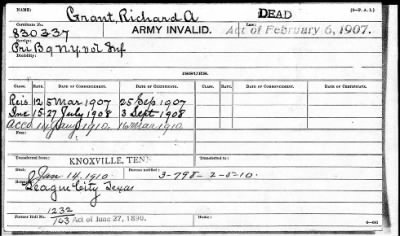 NAME: Grant, Richard A DEAD
830337 ARMY INVALID. Act of February 6, 1907.
Pri B 9 N.Y. Vol Inf
ISSUES.
CLASS. RATE. DATE OF COMMENCEMENT. DATE OF CERTIFICATE. CLASS. RATE. DATE OF COMMENCEMENT. DATE OF CERTIFICATE.
Reis 12 5 Mar 1907 25 Sep 1907
Inc 15 27 July 1908 3 Sept 1908
Accd 1910. 16 Mar 1910.
Transferred from KNOXVILLE, TENN
Died Jan 14, 1910 3-798- 2-5-10.
League City Texas
1232
Former Roll No. 163 Act of June 27, 1890.